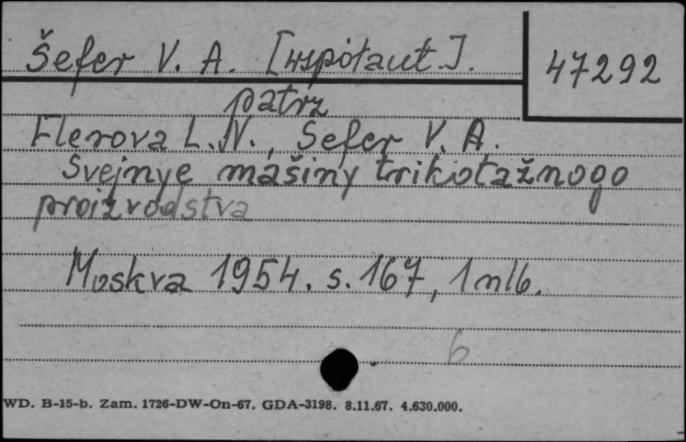 Šefer V. A. [współaut.].
47292
patrz
Flerova L. N., Šefer V. A.
Švejnye mašiny trikotažnogo
proizvodstva
Moskva 1954. s. 167, 1 nlb.
6
WD. B-15-b. Zam. 1726-DW-On-67. GDA-3198. 8.11.67. 4.630.000.